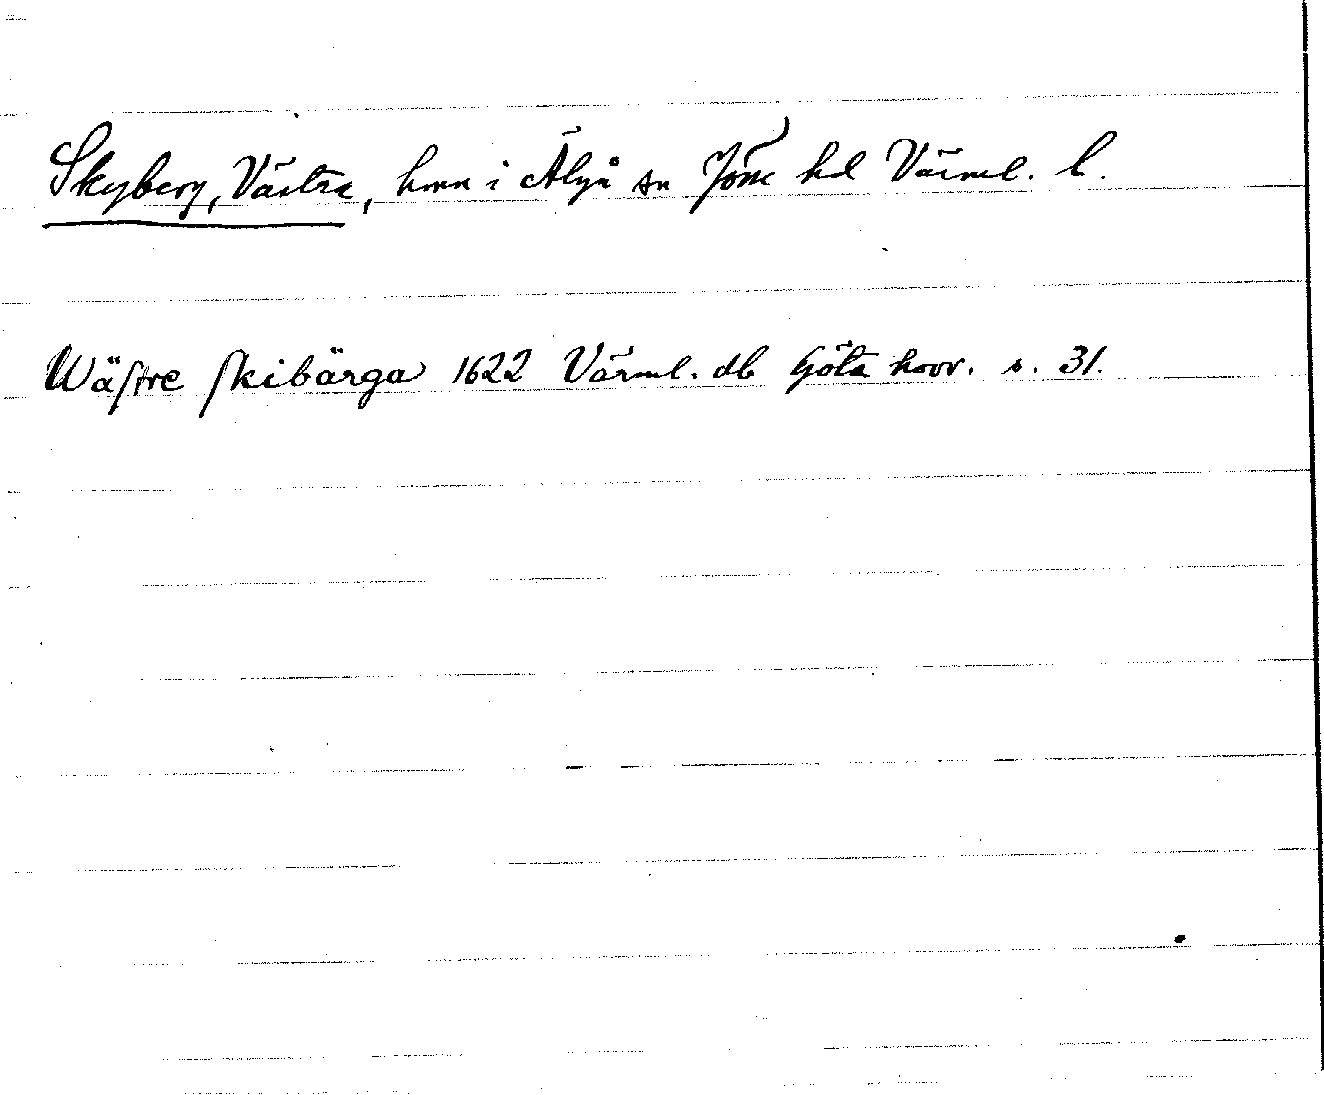 Skyberg, Västra, hmn i Älgå sn Jösse hd Värml. l.
Wäſtre ſkibärga 1622 Värml. db Göta hovr. s. 31.